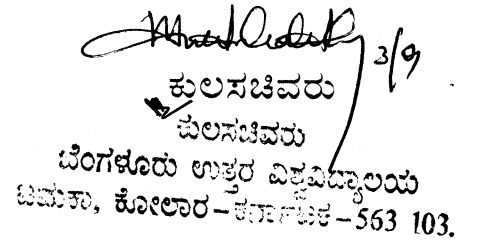 3/9
ಕುಲಸಚಿವರು
ಕುಲಸಚಿವರು
ಬೆಂಗಳೂರು ಉತ್ತರ ವಿಶ್ವವಿದ್ಯಾಲಯ
ಟಮಕಾ, ಕೋಲಾರ-ಕರ್ನಾಟಕ-563 103.